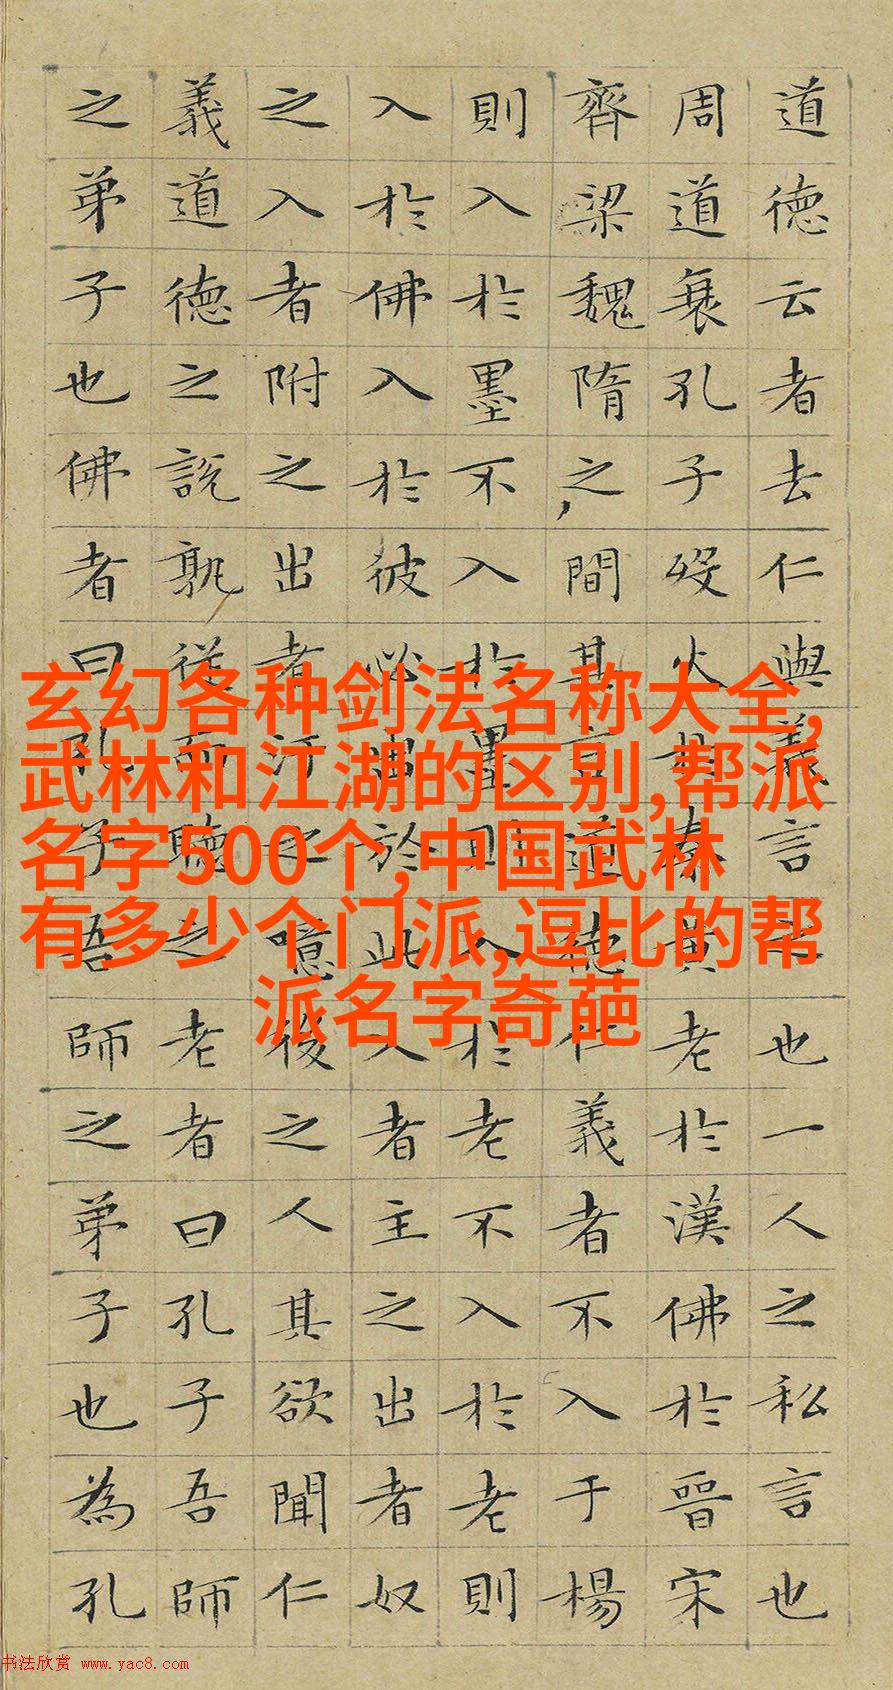 道德云者去仁與義言之也一人之私言也
周道衰孔子歿火于秦黃老於漢佛於晉宋
齊梁魏隋之間其言道德仁義者不入于楊
則入於墨不入於墨則入於老不入於老則
入於佛入於彼必出於此入者主之出者奴
之入者附之出者汙之噫後之人其欲聞仁
義道德之說孰從而聽之老者曰孔子吾師
之弟子也佛者曰孔子吾師之弟子也為孔
玄幻各种剑法名称大全,
武林和江湖的区别,帮派
名字500个,中国武林
有多少个门派,逗比的帮
派名字奇葩
书法欣赏 www.yac8.com